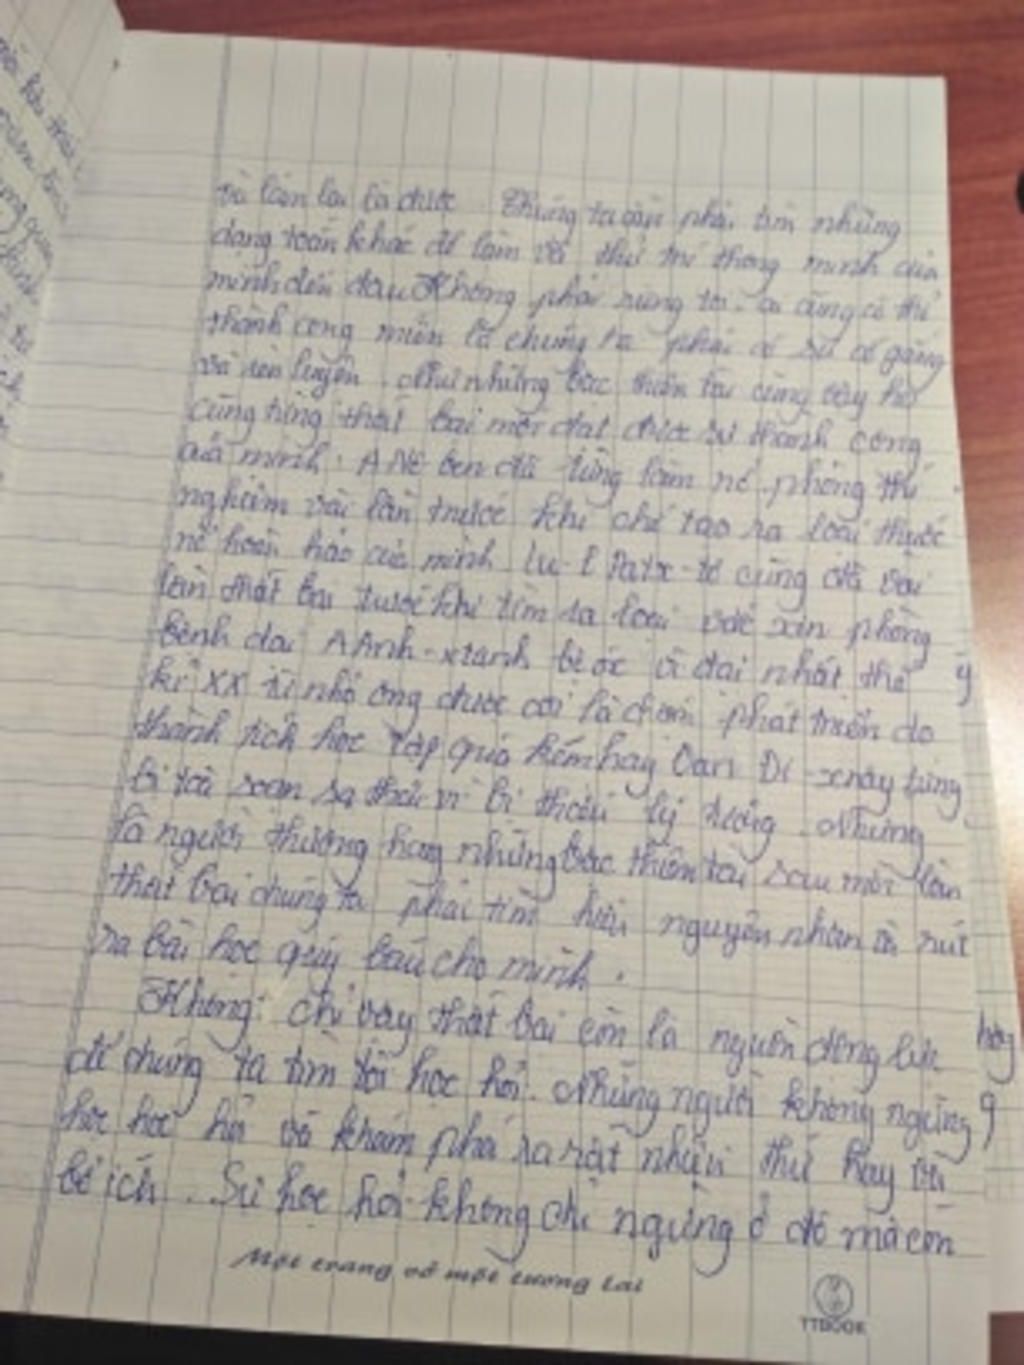 và làm lại là được. Chúng ta cần phải tìm những
dạng toán khác để làm và thử trí thông minh của
mình đến đâu Không phải riêng tôi, ai cũng có thể
thành công miễn là chúng ta phải có sự cố gắng
và rèn luyện. Như những bậc thiên tài cũng vậy họ
cũng từng thất bại mới đạt được sự thành công
của mình. A Nô ben đã từng làm nổ phòng thí
nghiệm vài lần trước khi chế tạo ra loại thuốc
nổ hoàn hảo của mình. Lu-i Patx-tơ cũng đã vài
lần thất bại trước khi tìm ra loại vắc xin phòng
bệnh dại A Anh-xtanh bộ óc vĩ đại nhất thế
kỉ XX từ nhỏ ông được coi là chậm phát triển do
thành tích học tập quá kém hay Oan Đi-xnây từng
bị toà soạn sa thải vì bị thiếu ý tưởng. Nhưng
là người thường hay những bậc thiên tài sau mỗi lần
thất bại chúng ta phải tìm hiểu nguyên nhân và rút
ra bài học quý báu cho mình.
Không chỉ vậy thất bại còn là nguồn động lực
để chúng ta tìm tòi học hỏi. Những người không ngừng
học học hỏi và khám phá ra rất nhiều thứ hay và
bổ ích. Sự học hỏi không chỉ ngừng ở đó mà còn
Một trang vở một tương lai
TTBOOK